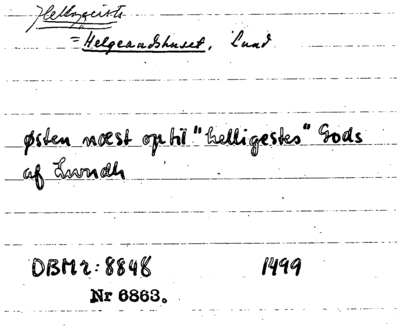 Helligeists
= Helgeandshuset, Lund
østen næst op til "helligestes" Gods
af Lwndh
DBM2: 8848 1499
Nr 6863.